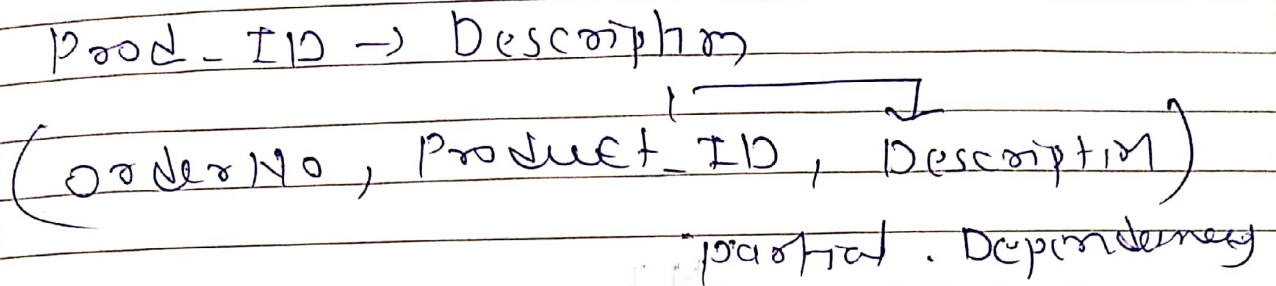 Prod_ID → Description
(OrderNo, Product_ID, Description)
partial. Dependency